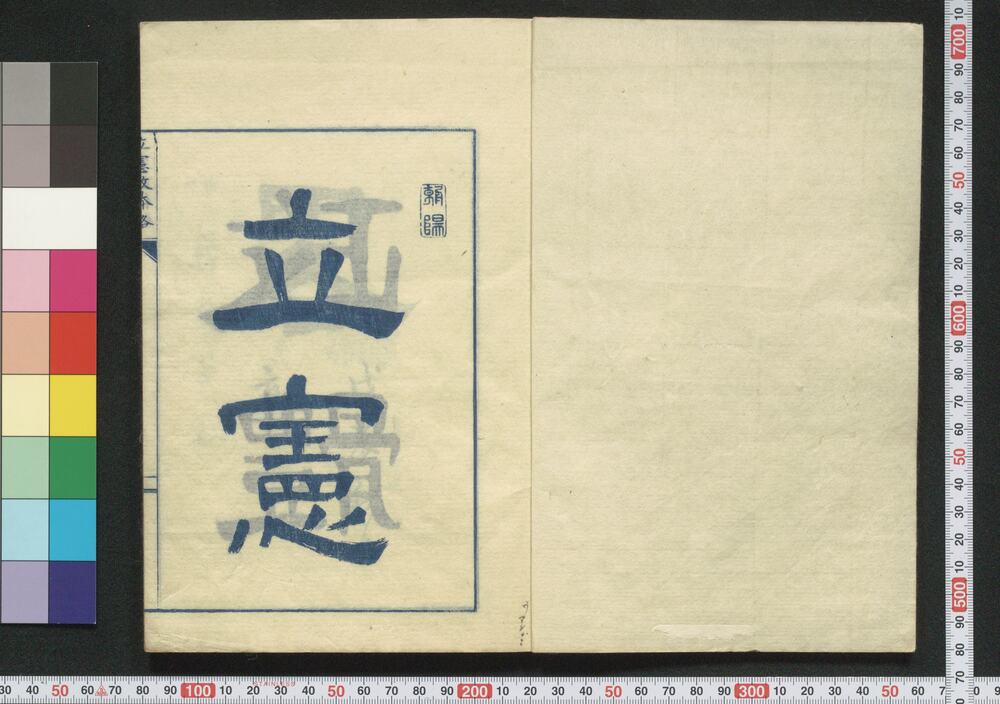 朝陽
立憲
立憲政体略
00 10 20 30 40 50 60 70 80 90 100 10 20 30 40 50 60 70 80 90 200 10 20 30 40 50 60 70 80 90 300 10 20 30 40 50 60
STAINLESS
10 700 90 80 70 60 50 40 30 20 10 600 90 80 70 60 50 40 30 20 10 500 90 80 70